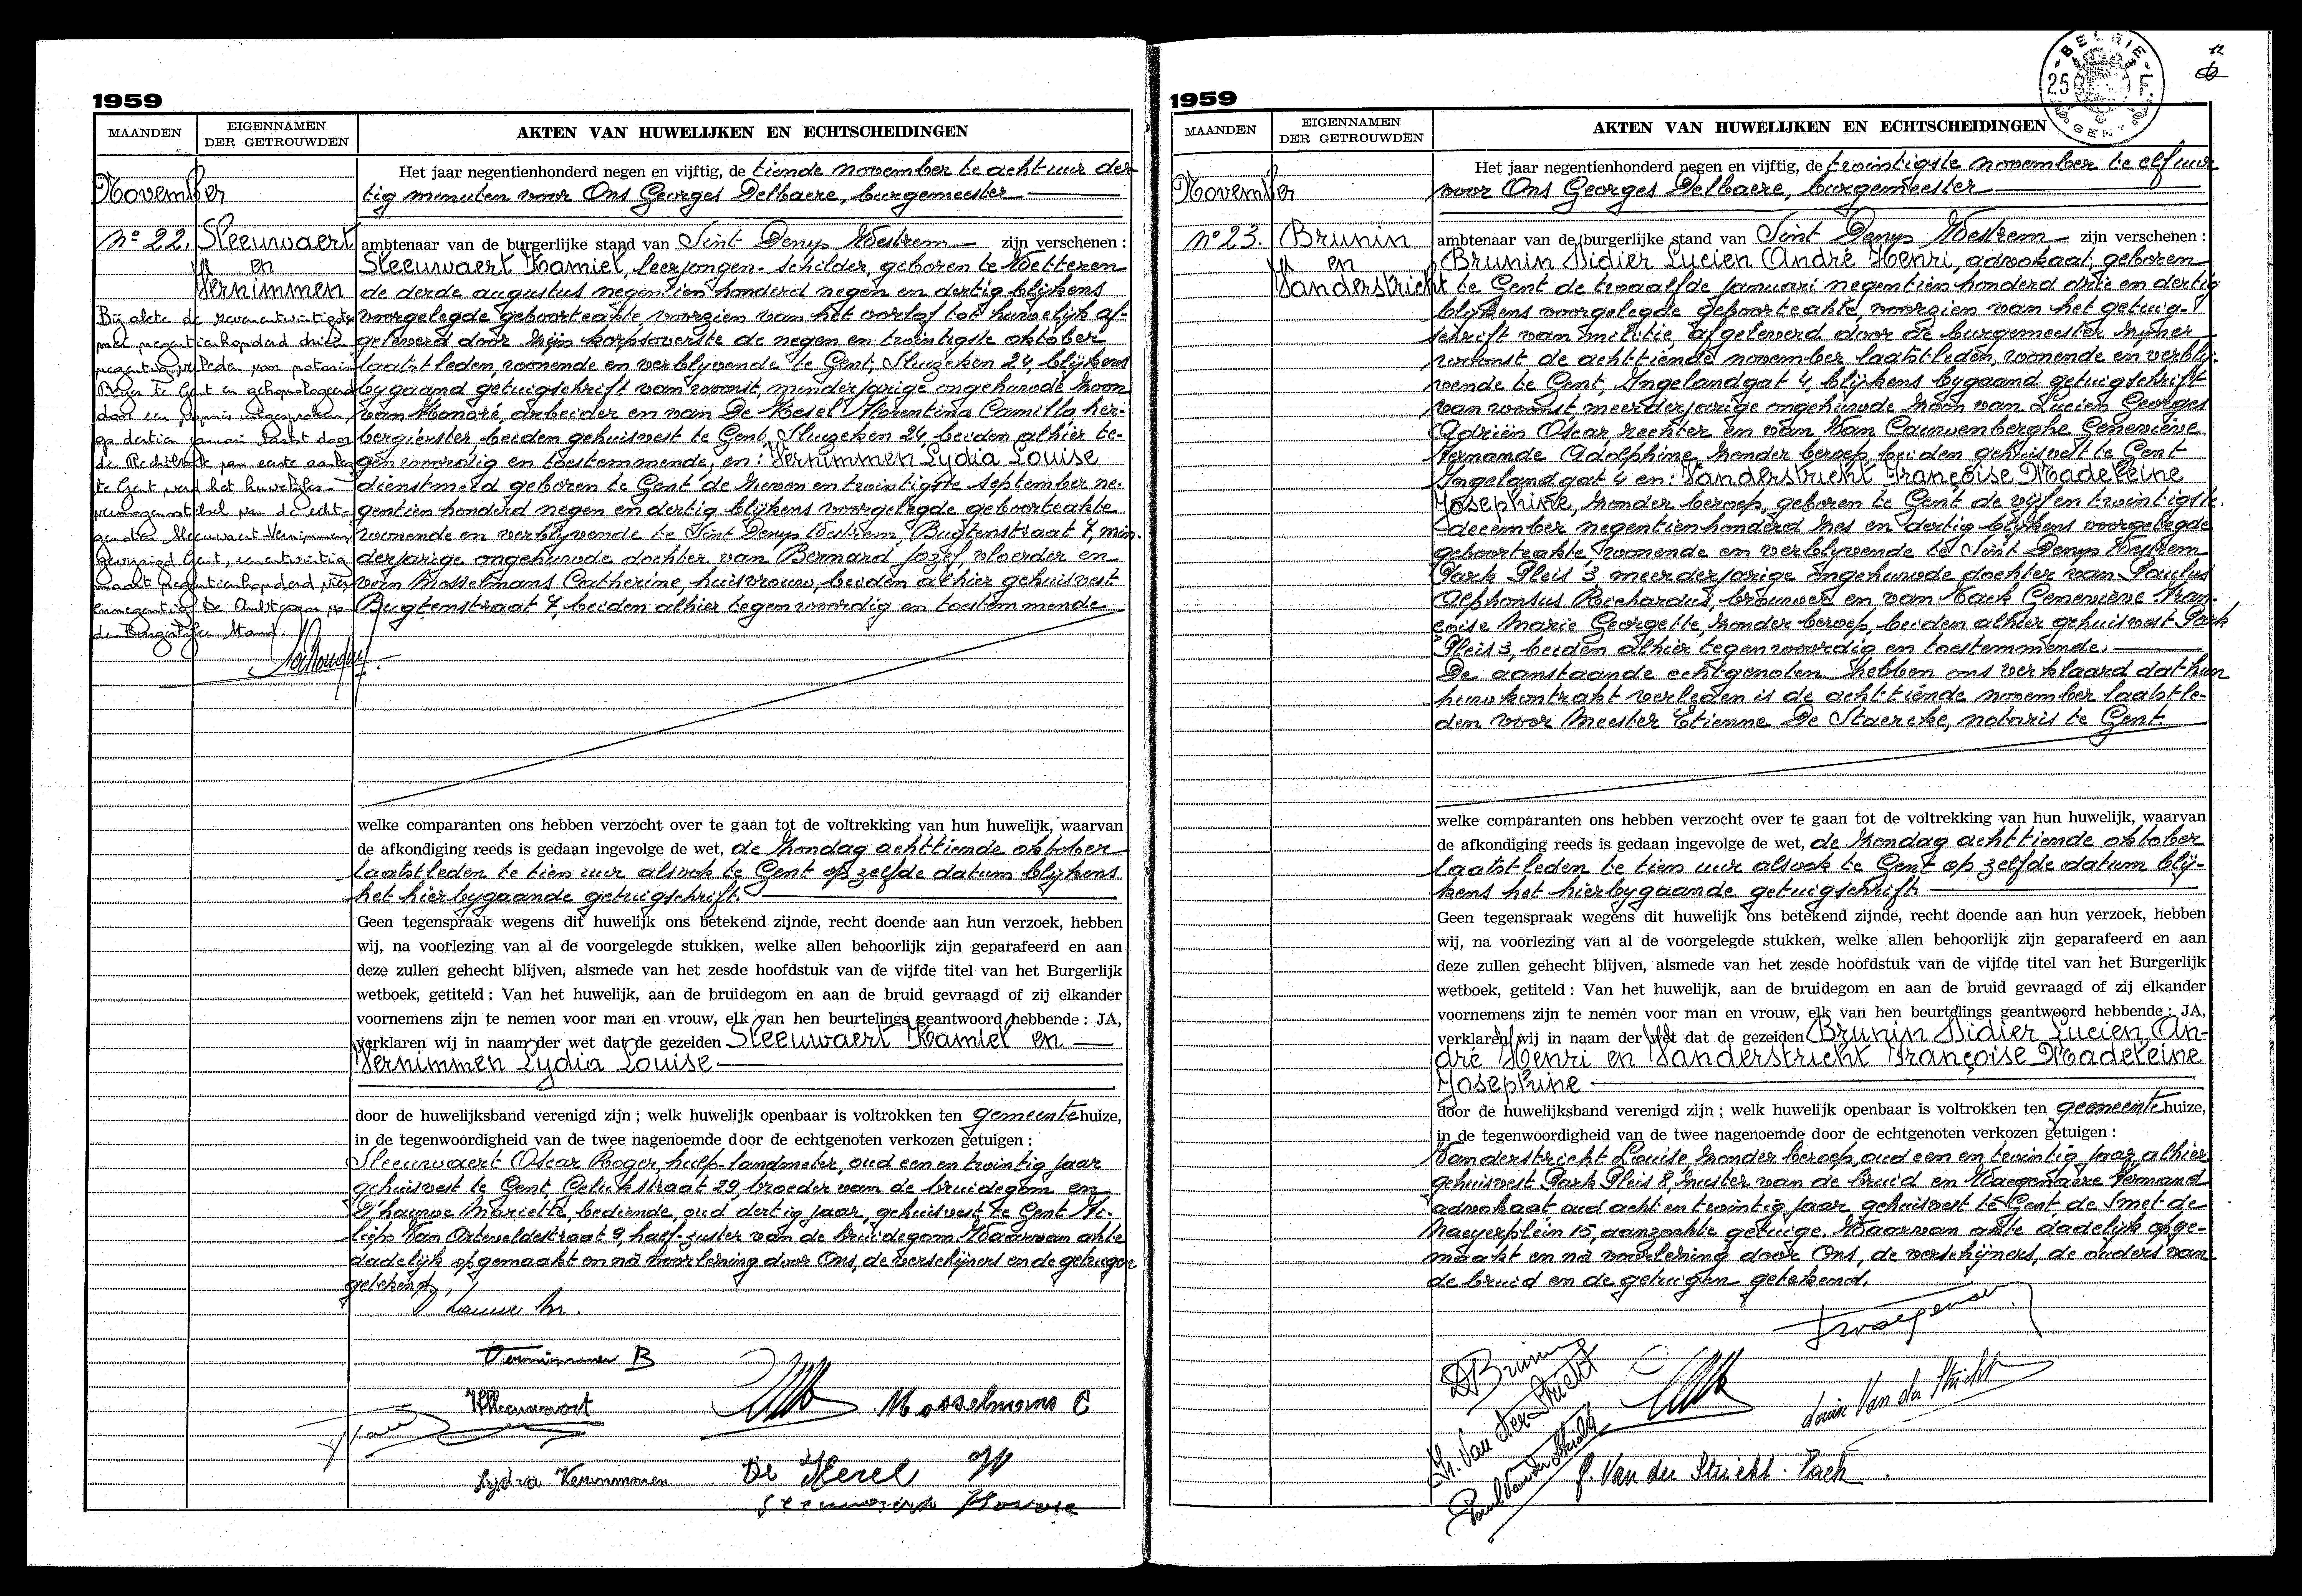 1959
MAANDEN
EIGENNAMEN
DER GETROUWDEN
AKTEN VAN HUWELIJKEN EN ECHTSCHEIDINGEN
November
Nº 22.
Sleeuwaert
en
Vernimmen
Bij akte d
met negentienhonderd drieën-
negentig verleden voor notaris
Beyer te Gent en gehomologeerd
door een vonnis uitgesproken,
op dertien januari laatst door
de Rechtbank van eerste aanleg
te Gent, werd het huwelijks-
vermogenstelsel van de echt-
genoten Sleeuwaert Vernimmen
gewijzigd. Gent,
maart negentienhonderd vier-
ennegentig De Ambtenaar van
de Burgerlijke Stand.
Het jaar negentienhonderd negen en vijftig, de tiende november te acht uur der-
tig minuten voor Ons Georges Delbaere, burgemeester
ambtenaar van de burgerlijke stand van Sint Denys Westrem zijn verschenen :
Sleeuwaert Kamiel, leerjongen-schilder, geboren te Wetteren
de derde augustus negentien honderd negen en dertig blijkens
voorgelegde geboorteakte, voorzien van het verlof tot huwelijk af-
geleverd door zijn korpsoverste de negen en twintigste oktober
laatstleden, wonende en verblyvende te Gent, Sluizeken 24, blijkens
bygaand getuigschrift van woonst, minderjarige ongehuwde zoon
van Honoré, arbeider en van De Kesel Florentina Camilla, her-
bergierster beiden gehuisvest te Gent, Sluizeken 24, beiden alhier te-
genwoordig en toestemmende, en : Vernimmen Lydia Louise
dienstmeid geboren te Gent de zeven en twintigste september ne-
gentien honderd negen en dertig blijkens voorgelegde geboorteakte
wonende en verblyvende te Sint Denys Westrem, Bugtenstraat 7, min-
derjarige ongehuwde dochter van Bernard Jozef, vloerder en
van Mosselmans Catherine, huisvrouw, beiden alhier gehuisvest
Bugtenstraat 7, beiden alhier tegenwoordig en toestemmende
welke comparanten ons hebben verzocht over te gaan tot de voltrekking van hun huwelijk, waarvan
de afkondiging reeds is gedaan ingevolge de wet, de zondag acht-tiende oktober
laatstleden te tien uur alsook te Gent op zelfde datum blijkens
het hierbygaande getuigschrift.
Geen tegenspraak wegens dit huwelijk ons betekend zijnde, recht doende aan hun verzoek, hebben
wij, na voorlezing van al de voorgelegde stukken, welke allen behoorlijk zijn geparafeerd en aan
deze zullen gehecht blijven, alsmede van het zesde hoofdstuk van de vijfde titel van het Burgerlijk
wetboek, getiteld : Van het huwelijk, aan de bruidegom en aan de bruid gevraagd of zij elkander
voornemens zijn te nemen voor man en vrouw, elk van hen beurtelings geantwoord hebbende : JA,
verklaren wij in naam der wet dat de gezeiden Sleeuwaert Kamiel en
Vernimmen Lydia Louise
door de huwelijksband verenigd zijn ; welk huwelijk openbaar is voltrokken ten gemeentehuize,
in de tegenwoordigheid van de twee nagenoemde door de echtgenoten verkozen getuigen :
Sleeuwaert Oscar Roger, hulp-landmeter, oud een en twintig jaar
gehuisvest te Gent, Gelukstraat 29, broeder van de bruidegom en
D'hauwe Mariette, bediende, oud dertig jaar, gehuisvest te Gent Fi-
lips Van Arteveldestraat 9, half-zuster van de bruidegom. Waarvan akte
dadelijk opgemaakt en na voorlezing door Ons, de verschijners en de getuigen
getekend.
Vernimmen B
Mosselmans C
Lydia Vernimmen
De Kesel
1959
MAANDEN
EIGENNAMEN
DER GETROUWDEN
AKTEN VAN HUWELIJKEN EN ECHTSCHEIDINGEN
BELGIE
25
F.
GENT
12
November
Nº 23.
Brunin
en
Vanderstricht
Het jaar negentienhonderd negen en vijftig, de twintigste november te elf uur
voor Ons Georges Delbaere, burgemeester
ambtenaar van de burgerlijke stand van Sint Denys Westrem zijn verschenen :
Brunin Didier Lucien André Henri, advokaat, geboren
te Gent de twaalfde januari negentien honderd drie en dertig
blijkens voorgelegde geboorteakte, voorzien van het getuig-
schrift van militie, afgeleverd door de burgemeester zijner
woonst de acht-tiende november laatst-leden, wonende en verbly-
vende te Gent, Ingelandgat 4, blijkens bygaand getuigschrift
van woonst, meerderjarige ongehuwde zoon van Lucien Georges
Adriën Oscar, rechter en van Van Cauwenberghe Geneviève
Fernande Adolphine, zonder beroep, beiden gehuisvest te Gent
Ingelandgat 4 en: Vanderstricht Françoise Madeleine
Josephine, zonder beroep, geboren te Gent de vijf en twintigste
december negentien honderd zes en dertig blijkens voorgelegde
geboorteakte, wonende en verblyvende te Sint Denys Westrem
Park Pleis 3, meerderjarige ongehuwde dochter van Paulus
Alphonsus Richardus, brouwer en van Tack Geneviève Fran-
çoise Marie Georgette, zonder beroep, beiden alhier gehuisvest Park
Pleis 3, beiden alhier tegenwoordig en toestemmende.
De aanstaande echtgenoten hebben ons verklaard dat hun
huwkontrakt verleden is de acht-tiende november laatst-le-
den voor Meester Etienne De Staercke, notaris te Gent.
welke comparanten ons hebben verzocht over te gaan tot de voltrekking van hun huwelijk, waarvan
de afkondiging reeds is gedaan ingevolge de wet, de zondag acht-tiende oktober
laatst leden te tien uur alsook te Gent op zelfde datum blij-
kens het hierbygaande getuigschrift
Geen tegenspraak wegens dit huwelijk ons betekend zijnde, recht doende aan hun verzoek, hebben
wij, na voorlezing van al de voorgelegde stukken, welke allen behoorlijk zijn geparafeerd en aan
deze zullen gehecht blijven, alsmede van het zesde hoofdstuk van de vijfde titel van het Burgerlijk
wetboek, getiteld : Van het huwelijk, aan de bruidegom en aan de bruid gevraagd of zij elkander
voornemens zijn te nemen voor man en vrouw, elk van hen beurtelings geantwoord hebbende : JA,
verklaren wij in naam der wet dat de gezeiden Brunin Didier Lucien An-
dré Henri en Vanderstricht Françoise Madeleine
Josephine
door de huwelijksband verenigd zijn ; welk huwelijk openbaar is voltrokken ten gemeentehuize,
in de tegenwoordigheid van de twee nagenoemde door de echtgenoten verkozen getuigen :
Vanderstricht Louise zonder beroep, oud een en twintig jaar, alhier
gehuisvest Park Pleis 8, zuster van de bruid en Waegenaere Fernand
advokaat oud acht en twintig jaar gehuisvest te Gent, de Smet-de
Naeyerplein 15, aanzochte getuige. Waarvan akte dadelijk opge-
maakt en na voorlezing door Ons, de verschijners, de ouders van
de bruid en de getuigen getekend.
D Brunin
Fr. Van der Stricht
Louise Van der Stricht
Paul Van der Stricht
G. Van der Stricht. Tack